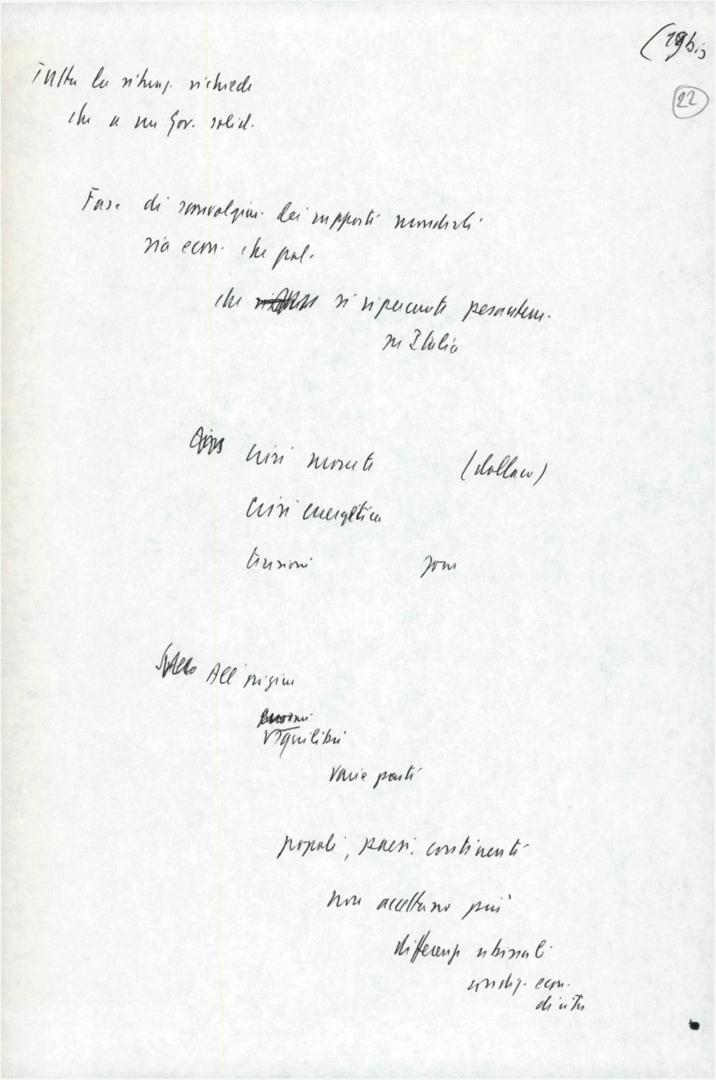 (19bis
22
Tutta la situaz. richiede
che a un Gov. solid.
Fase di sconvolgim. dei rapporti mondiali
sia econ. che pol.
che si ripercuote pesantem.
su Italia
Crisi monete (dollaro)
Crisi energetica
tensioni
All'origine
squilibri
varie parti
popoli, paesi, continenti
non accettano più
differenze abissali
condiz. econ.
di vita